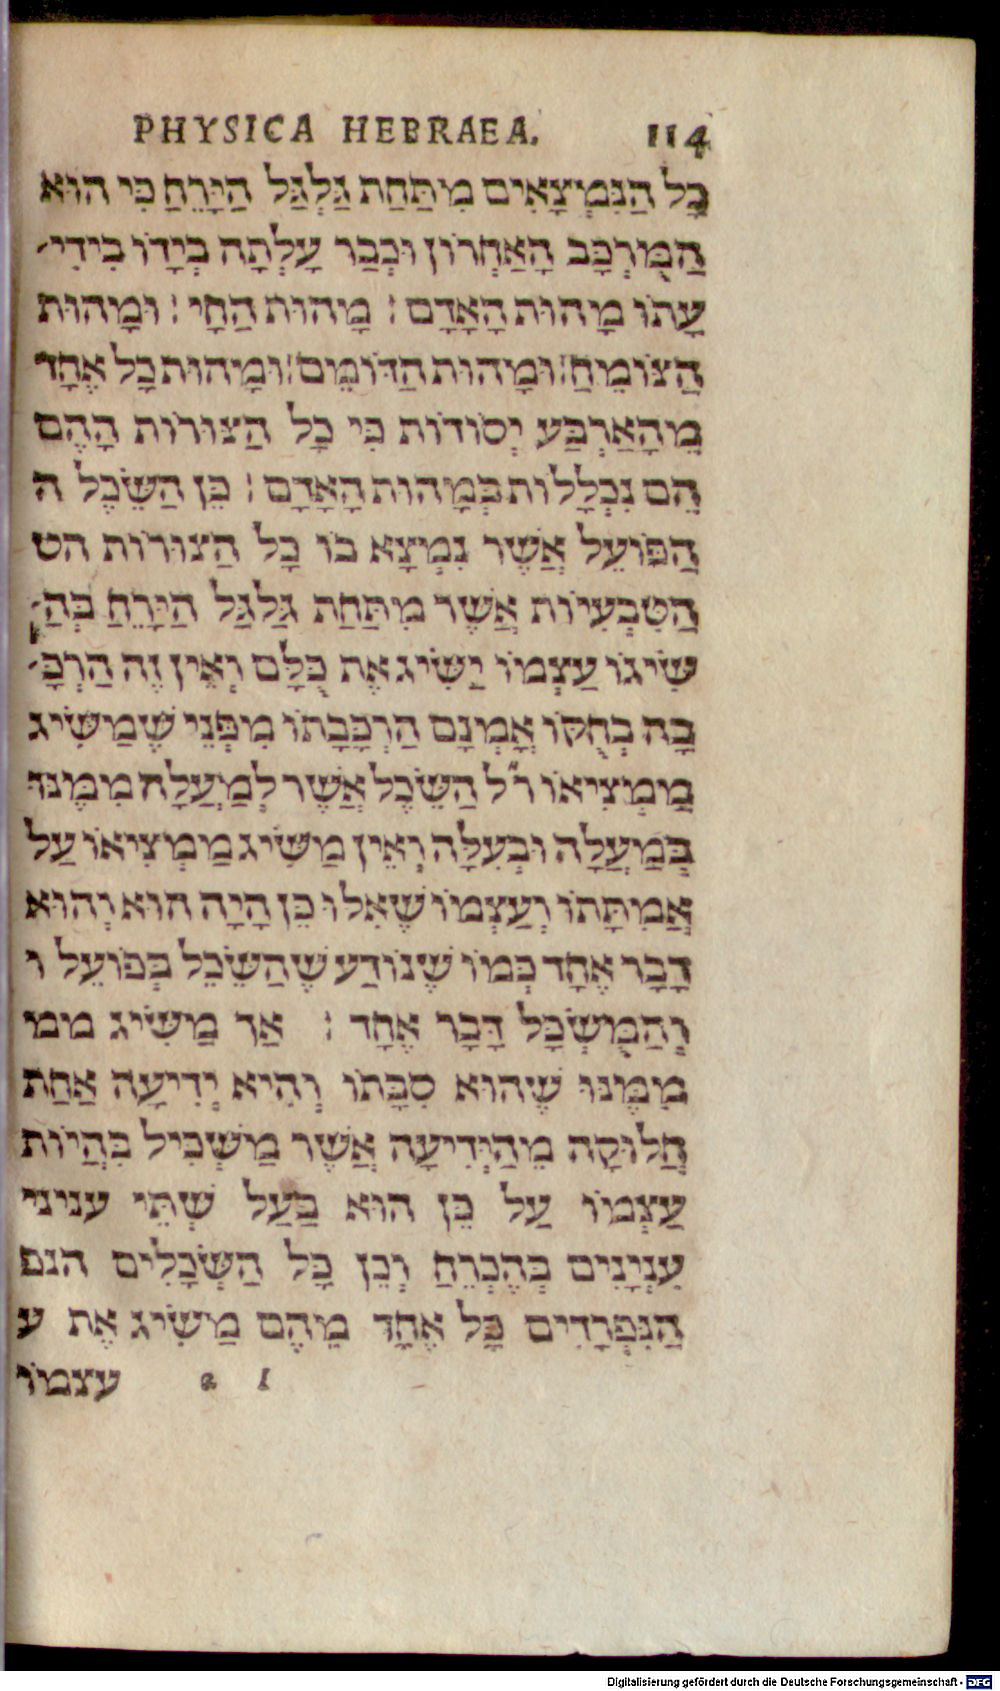 PHYSICA HEBRAEA. 114
כָל הַנִּמְצָאִים מִתַּחַת גַּלְגַּל הַיָּרֵחַ כִּי הוּא
הַמֻּרְכָּב הָאַחְרוֹן וּכְבַר עָלְתָה בְיָדוֹ בִידִי־
עָתוֹ מָהוּת הָאָדָם : מָהוּת הַחָי : וּמָהוּת
הַצּוֹמֵחַ : וּמָהוּת הַדּוֹמֵם : וּמָהוּת כָּל אֶחָד
מֵהָאַרְבַּע יְסוֹדוֹת כִּי כָל הַצּוּרוֹת הָהֶם
הֵם נִכְלָלוֹת בְּמָהוּת הָאָדָם : כֵּן הַשֵּׂכֶל ה
הַפּוֹעֵל אֲשֶׁר נִמְצָא בוֹ כָל הַצוּרוֹת הט
הַטִּבְעִיּוֹת אֲשֶׁר מִתַּחַת גַּלְגַּל הַיָּרֵחַ בְּהַ־
שִׂיגוֹ עַצְמוֹ יַשִּׂיג אֶת כֻּלָּם וְאֵין זֶה הַרְכָּ־
בָה בְחֻקּוֹ אָמְנָם הַרְכָּבָתוֹ מִפְּנֵי שֶׁמַשִּׂיג
מַמְצִיאוֹ ר״ל הַשֵּׂכֶל אֲשֶׁר לְמַעְלָה מִמֶּנּוּ
בְּמַעֲלָה וּבְעִלָּה וְאֵין מַשִּׂיג מַמְצִיאוֹ עַל
אֲמִתָּתוֹ וְעַצְמוֹ שֶׁאִלּוּ כֵּן הָיָה הוּא וְהוּא
דָבָר אֶחָד כְּמוֹ שֶׁנּוֹדַע שֶׁהַשֵּׂכֵל בְּפוֹעֵל ו
וְהַמֻּשְׂכָּל דָּבָר אֶחָד : אַךְ מַשִּׂיג ממ
מִמֶּנּוּ שֶׁהוּא סִבָּתוֹ וְהִיא יְדִיעָה אַחַת
חֲלוּקָה מֵהַיְדִיעָה אֲשֶׁר מַשְׂכִּיל בִּהְיוֹת
עַצְמוֹ עַל כֵּן הוּא בַּעַל שְׁתֵּי עניני
עִנְיָנִים בְּהֶכְרֵחַ וְכֵן כָּל הַשְּׂכָלִים הנפ
הַנִּפְרָדִים כָּל אֶחָד מֵהֶם מַשִּׂיג אֶת ע
l 2 עצמוֹ
Digitalisierung gefördert durch die Deutsche Forschungsgemeinschaft - DFG